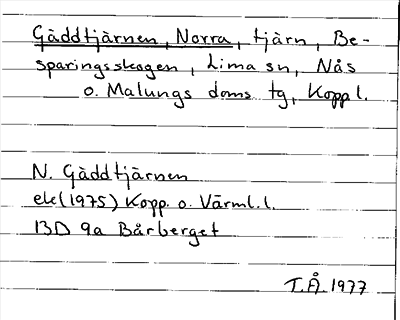 Gäddtjärnen, Norra, tjärn, Be-
sparingsskogen, Lima sn, Nås
o. Malungs doms tg, Kopp l.
N. Gäddtjärnen
ek (1975) Kopp. o. Värml. l.
13D 9a Bårberget
T.Å. 1977